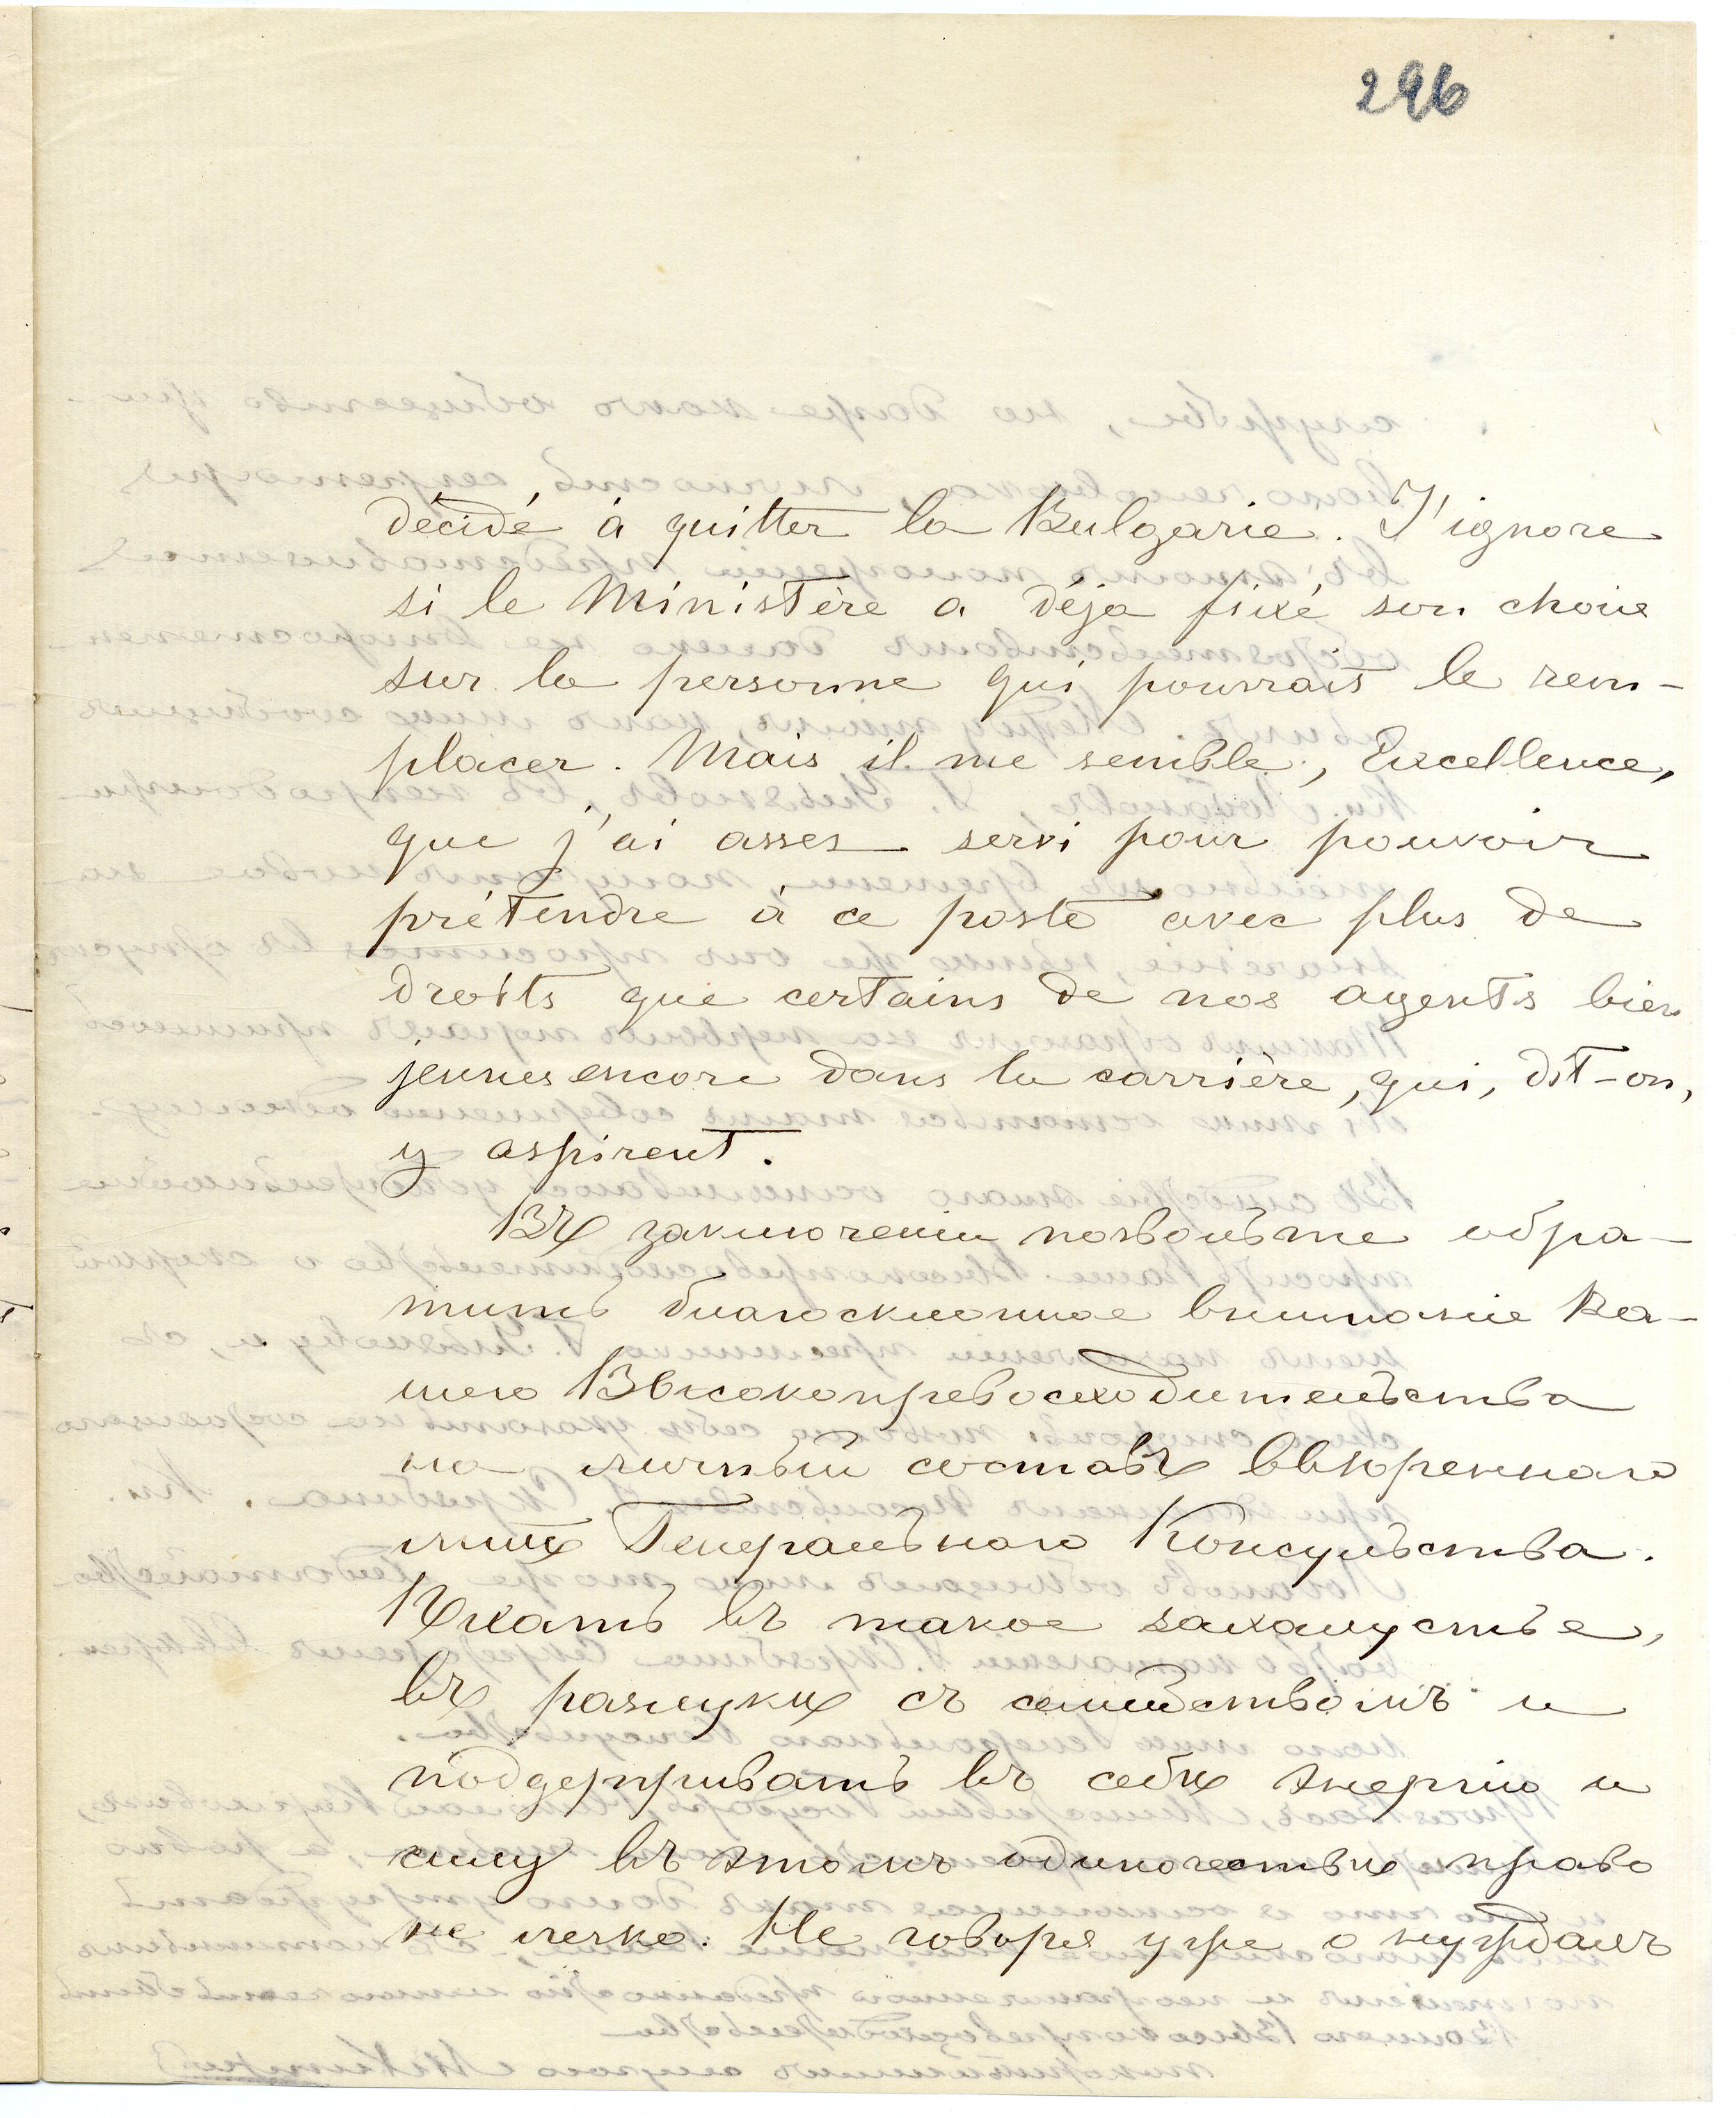 296
décidé à quitter la Bulgarie. J'ignore
si le Ministère a déja fixé son choix
sur la personne qui pourrait le rem-
placer. Mais il me semble, Excellence,
que j'ai asses servi pour pouvoir
prétendre à ce poste avec plus de
droits que certains de nos agents bien
jeunes encore dans la carrière, qui, dit-on,
y aspirent.
Въ заключеніи позвольте обра-
тить благосклонное вниманіе Ва-
шего Высокопревосходительства
на личный составъ ввѣреннаго
мнѣ Генеральнаго Консульства.
въ такое захолустье,
въ разлукѣ съ семействомъ и
поддерживать въ себѣ энергію и
силу въ этомъ одиночествѣ право
не легко. Не говоря уже о нуждахъ